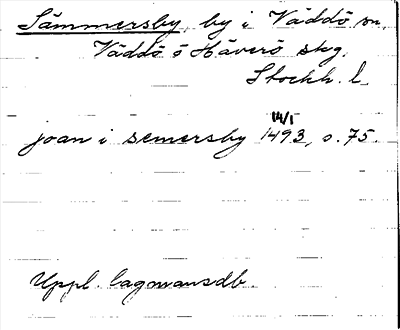 Sämmersby, by i Väddö sn.
Väddö o Häverö skg.
Stockh. l.
14/1
joan i semersby 1493, s. 75.
Uppl. lagmansdb.